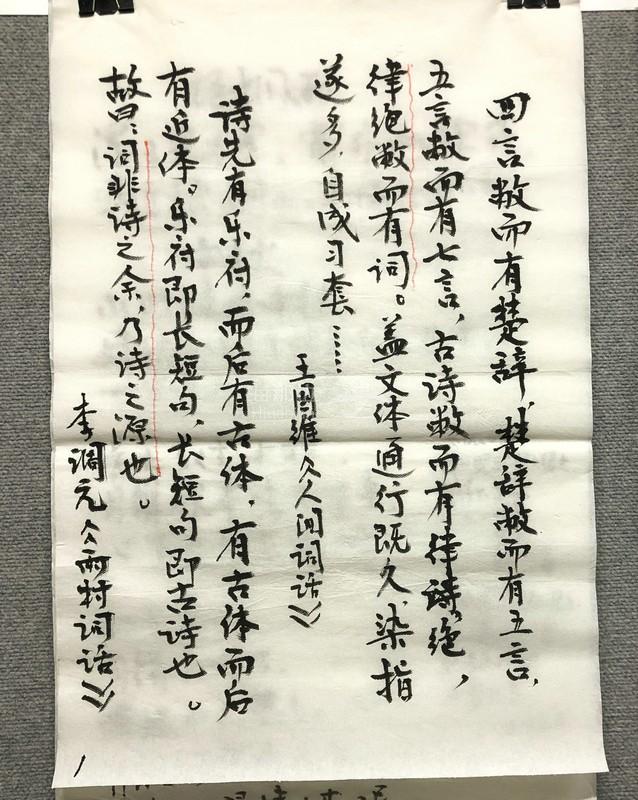 四言敝而有楚辞，楚辞敝而有五言，
五言敝而有七言，古诗敝而有律诗。绝，
律绝敝而有词。盖文体通行既久，染指
遂多，自成习套……
王国维《人间词话》
诗先有乐府，而后有古体，有古体而后
有近体。乐府即长短句，长短句即古诗也。
故曰：词非诗之余，乃诗之源也。
李调元《雨村词话》